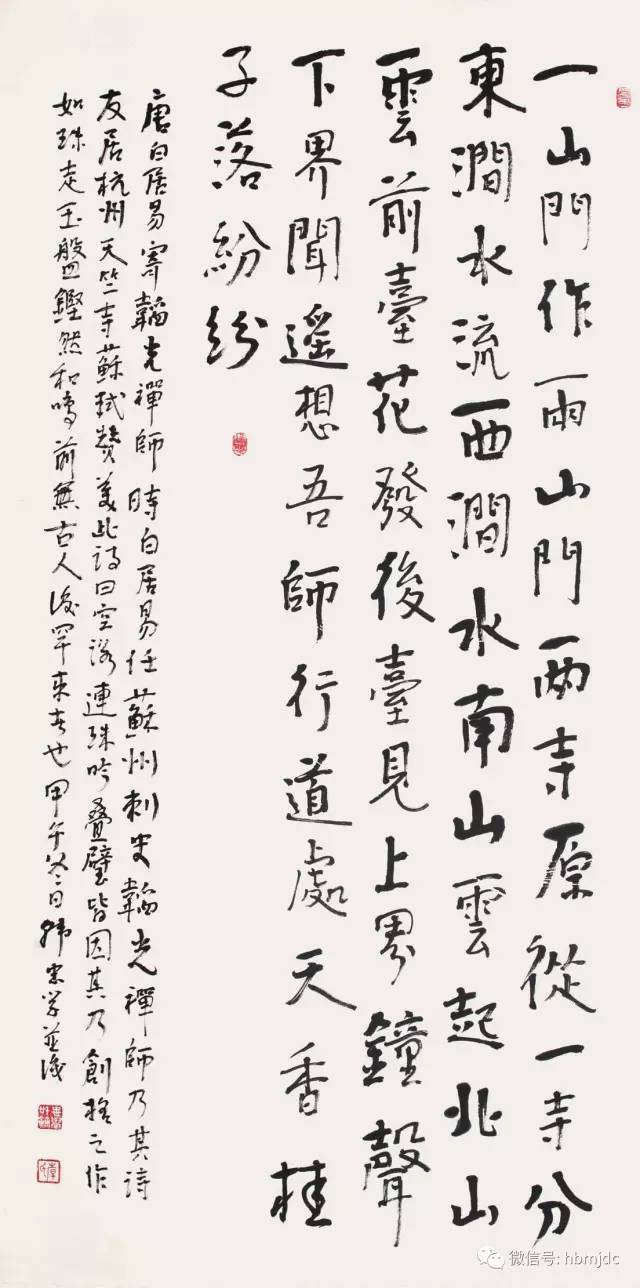 一山門作兩山門兩寺原從一寺分
東澗水流西澗水南山雲起北山
雲前臺花發後臺見上界鐘聲
下界聞遙想吾師行道處天香桂
子落紛紛
唐白居易寄韜光禪師時白居易任蘇州刺史韜光禪師乃其詩
友居杭州天竺寺蘇軾贊美此詩曰空詠連珠吟疊璧皆因其乃創格之作
如珠走玉盤鏗然和鳴前無古人後罕來者也甲午冬日學並識
微信号: hbmjdc